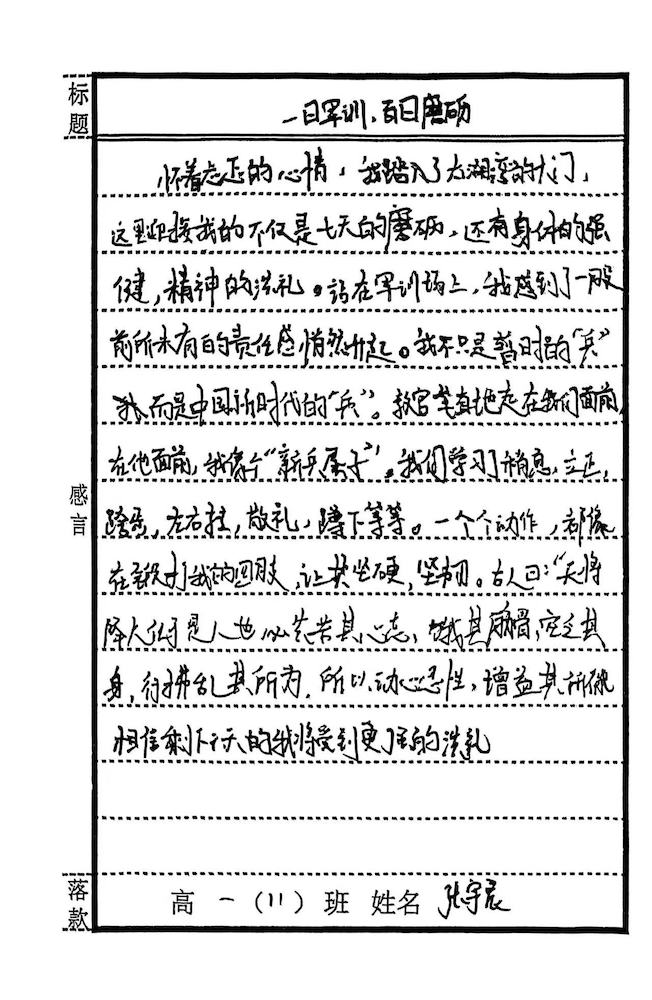 标题
一日军训，百日磨砺
怀着忐忑的心情，我踏入了太湖湾的大门，
这里迎接我的不仅是七天的磨砺，还有身体的强
健，精神的洗礼。站在军训场上，我感到了一股
前所未有的责任感悄然升起。我不只是暂时的“兵”
而是中国新时代的“兵”。教官笔直地走在我们面前，
在他面前，我像个“新兵蛋子”。我们学习了稍息，立正，
跨立，左右转，敬礼，蹲下等等。一个个动作，都像
在锻打我的四肢，让其坚硬，坚韧。古人曰：“天将
降大任于是人也必先苦其心志，饿其体肤，空乏其
身，行拂乱其所为，所以动心忍性，增益其所不能
相信剩下天的我将受到更的洗礼
感言
落款
高一（11）班 姓名 张宇辰